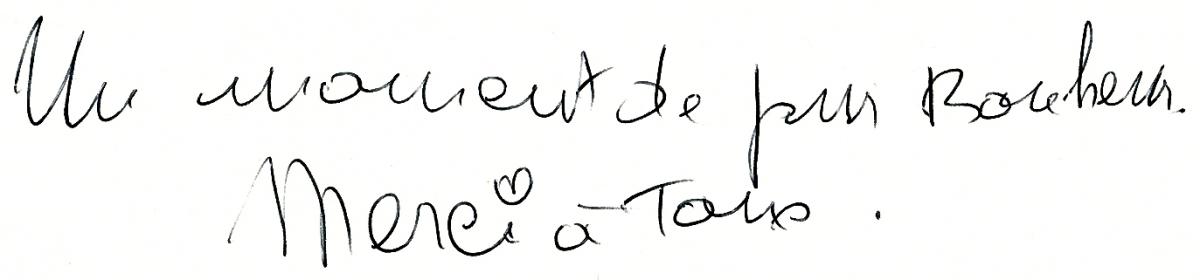 Un moment de pur Bonheur.
Merci à Tous.